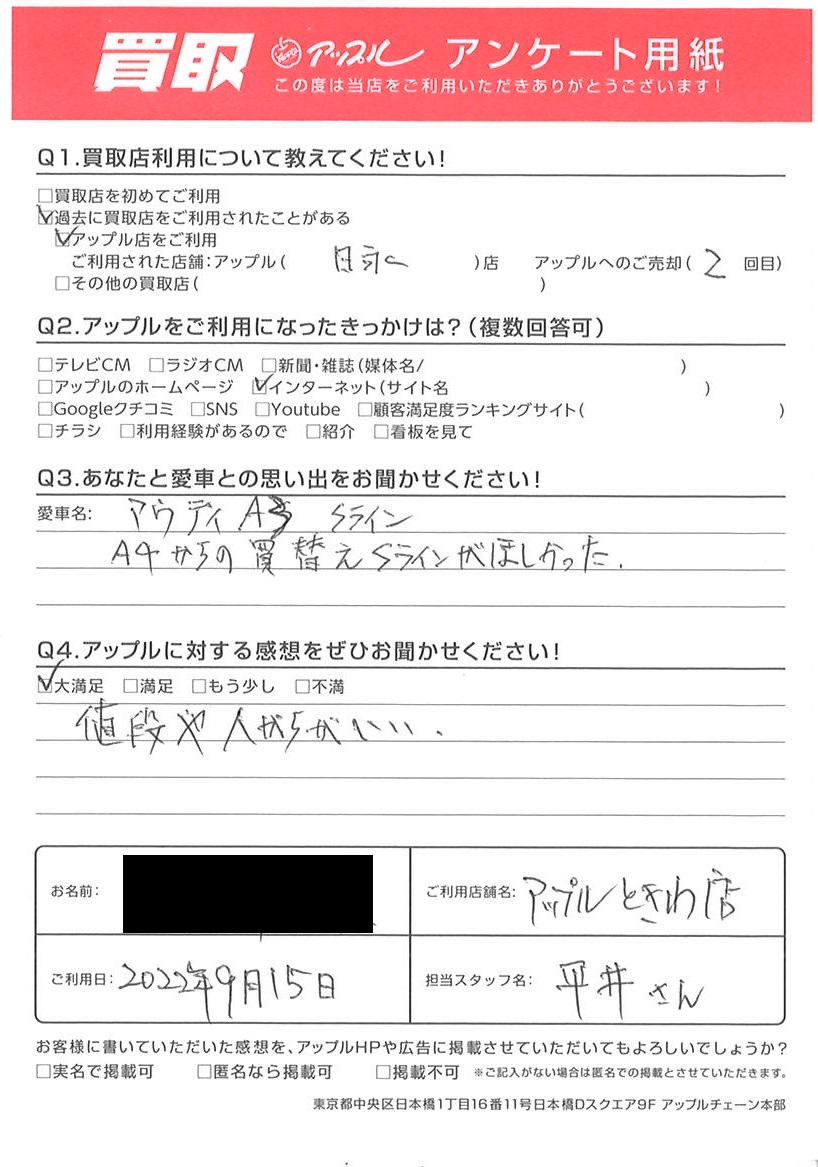 買取 アップル アンケート用紙
この度は当店をご利用いただきありがとうございます!
Q1.買取店利用について教えてください!
□買取店を初めてご利用
☑過去に買取店をご利用されたことがある
☑アップル店をご利用
ご利用された店舗:アップル( 日永 )店 アップルへのご売却( 2 回目)
□その他の買取店( )
Q2.アップルをご利用になったきっかけは?(複数回答可)
□テレビCM □ラジオCM □新聞・雑誌(媒体名/ )
□アップルのホームページ ☑インターネット(サイト名 )
□Googleクチコミ □SNS □Youtube □顧客満足度ランキングサイト( )
□チラシ □利用経験があるので □紹介 □看板を見て
Q3.あなたと愛車との思い出をお聞かせください!
愛車名: アウディ A3 Sライン
A4からの買替えSラインがほしかった.
Q4.アップルに対する感想をぜひお聞かせください!
☑大満足 □満足 □もう少し □不満
値段や人がらがいい.
お名前:
ご利用店舗名: アップルときわ店
ご利用日: 2022年9月15日
担当スタッフ名: 平井さん
お客様に書いていただいた感想を、アップルHPや広告に掲載させていただいてもよろしいでしょうか?
□実名で掲載可 □匿名なら掲載可 □掲載不可 ※ご記入がない場合は匿名での掲載とさせていただきます。
東京都中央区日本橋1丁目16番11号日本橋Dスクエア9F アップルチェーン本部